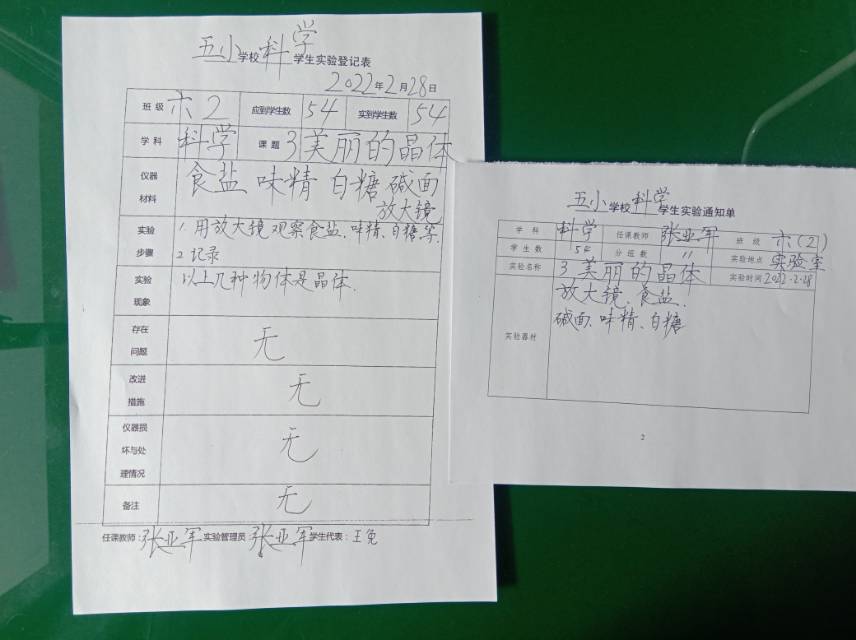 五小学校科学学生实验登记表
2022年2月28日
班级 六2 应到学生数 54 实到学生数 54
学科 科学 课题 3美丽的晶体
仪器材料 食盐 味精 白糖 碱面
放大镜
实验步骤 1.用放大镜观察食盐、味精、白糖等.
2记录
实验现象 以上几种物体是晶体.
存在问题 无
改进措施 无
仪器损坏与处理情况 无
备注 无
任课教师:张亚军 实验管理员:张亚军 学生代表:王兔
五小学校科学学生实验通知单
学科 科学 任课教师 张亚军 班级 六(2)
学生数 54 分组数 11 实验地点 实验室
实验名称 3美丽的晶体 实验时间 2022.2.28
实验器材 放大镜、食盐、
碱面、味精、白糖
2